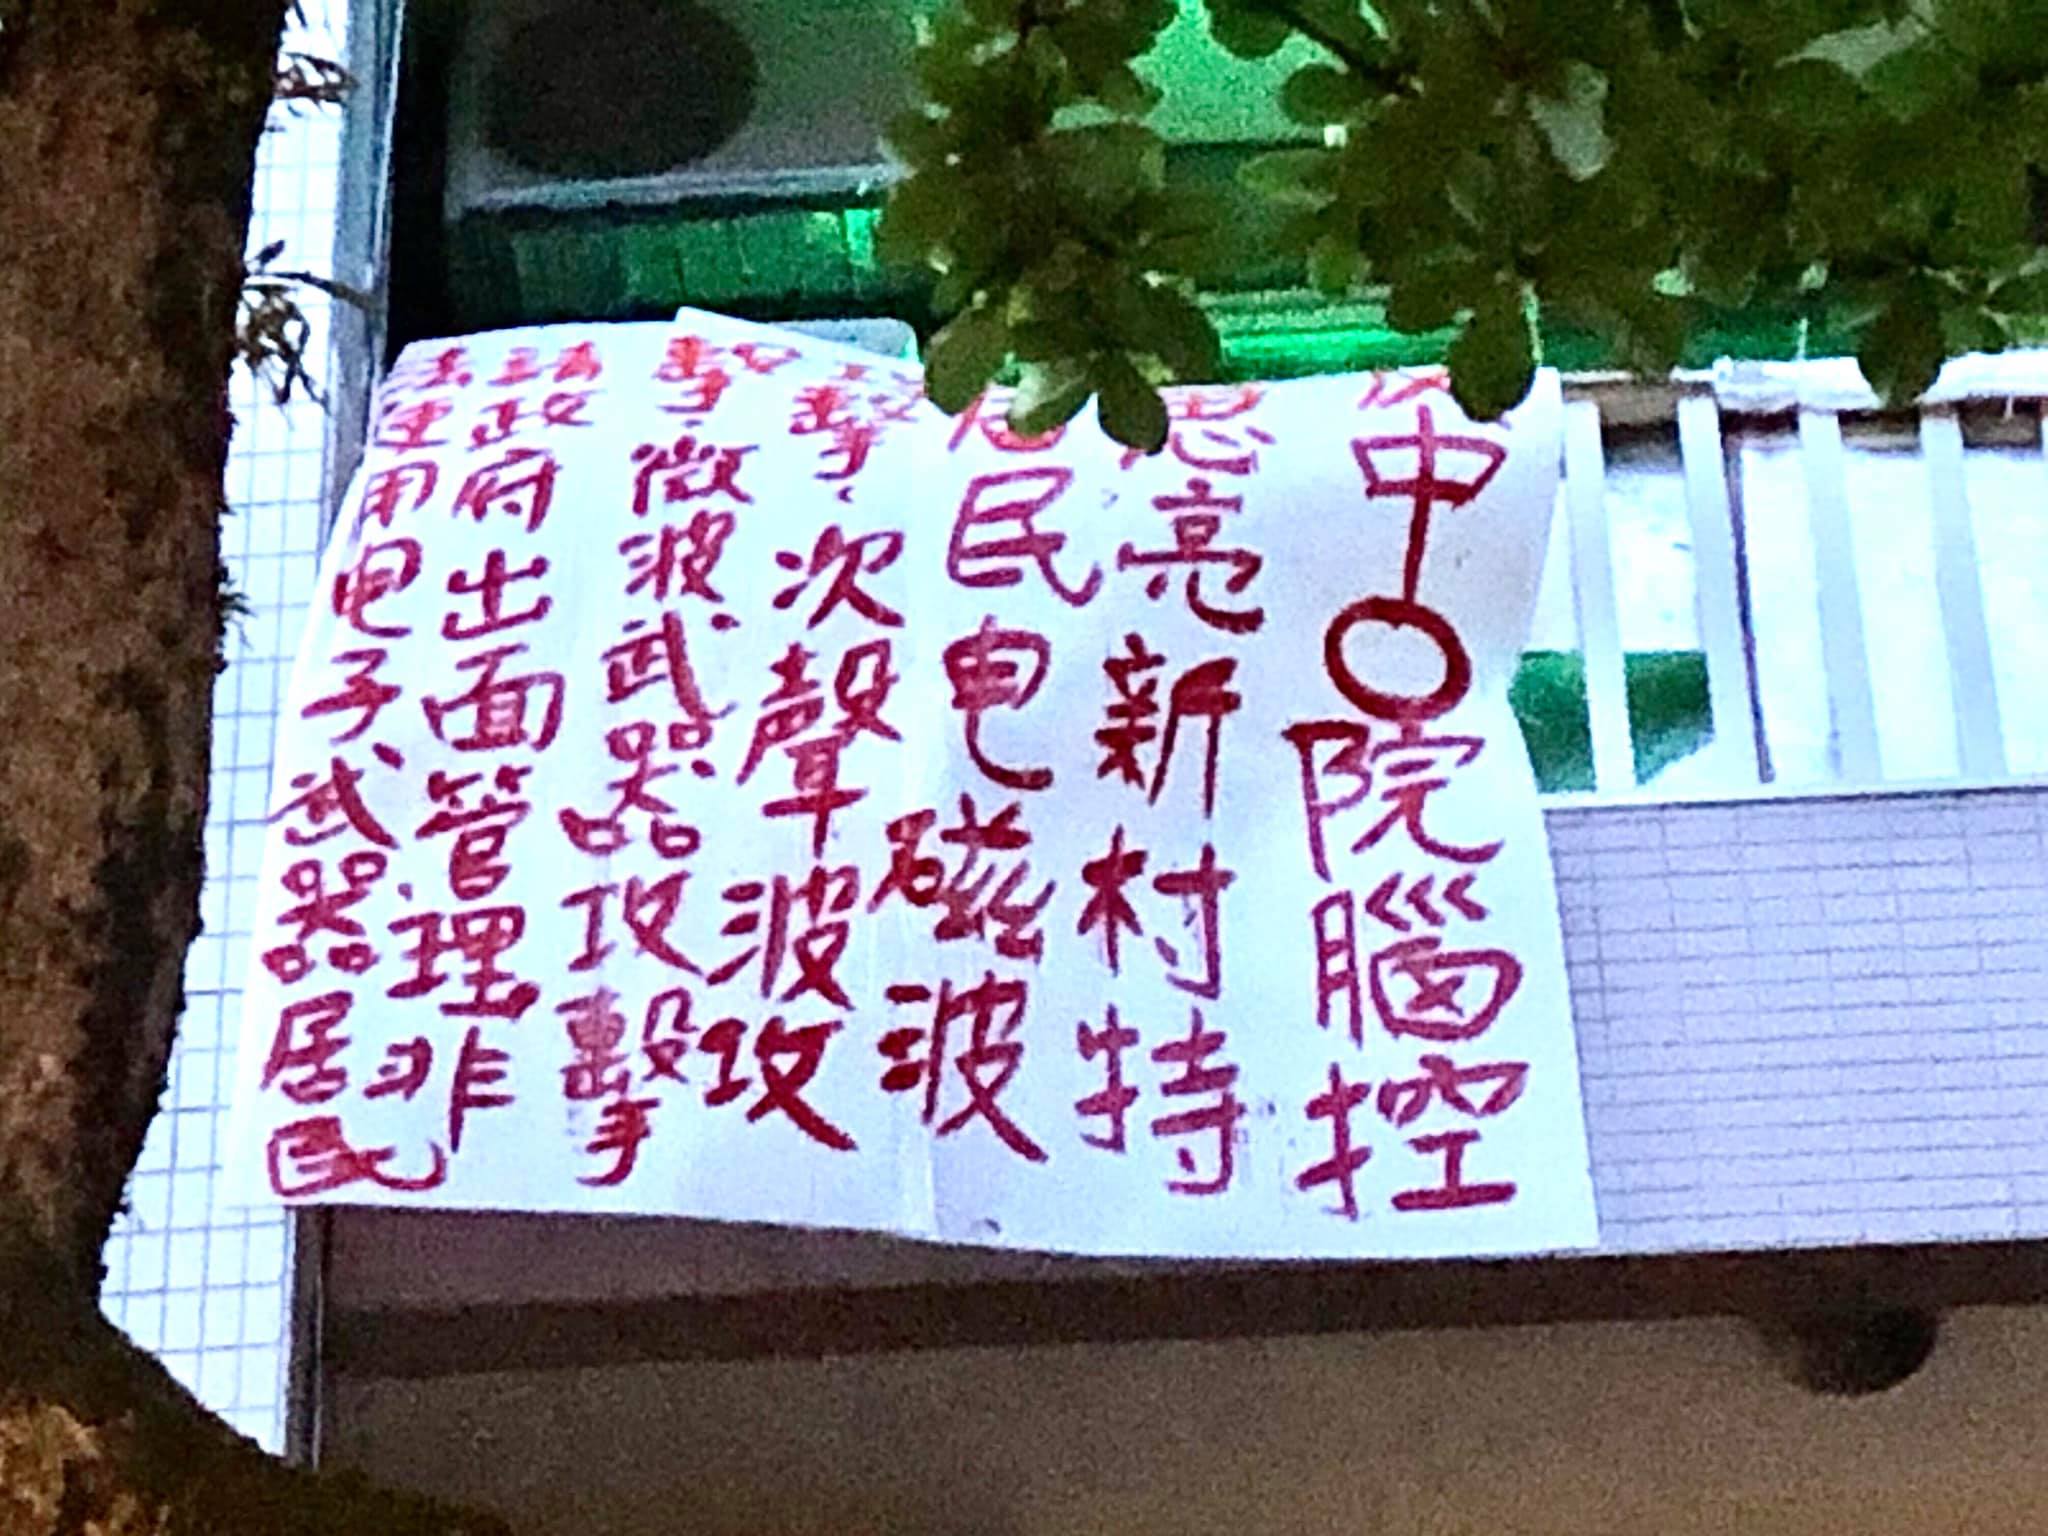 中〇院腦控
忠亮新村特
居民电磁波
擊.次聲波攻
擊.微波武器攻擊
請政府出面管理非
法使用电子武器居民